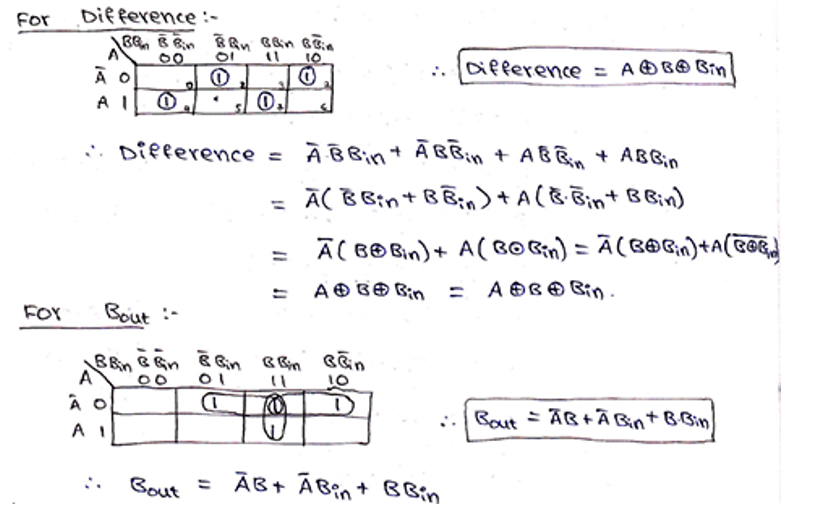 For Difference :-
A BBin B̄ B̄in B̄ Bin BBin BB̄in
00 01 11 10
Ā 0 0 1 3 1 2
A 1 1 4 5 1 7 6
∴ Difference = A ⊕ B ⊕ Bin
∴ Difference = Ā·B̄Bin + ĀBB̄in + AB̄B̄in + ABBin
= Ā( B̄Bin + BB̄in ) + A( B̄·B̄in + BBin )
= Ā( B⊕Bin ) + A( B⊙Bin ) = Ā( B⊕Bin ) + A( B̅⊕̅B̅i̅n̅ )
= A ⊕ B ⊕ Bin = A ⊕ B ⊕ Bin .
FOR Bout :-
A BBin B̄ B̄in B̄ Bin BBin BB̄in
00 01 11 10
Ā 0 1 1 1
A 1 1
∴ Bout = ĀB + ĀBin + B·Bin
∴ Bout = ĀB + ĀBin + BBin